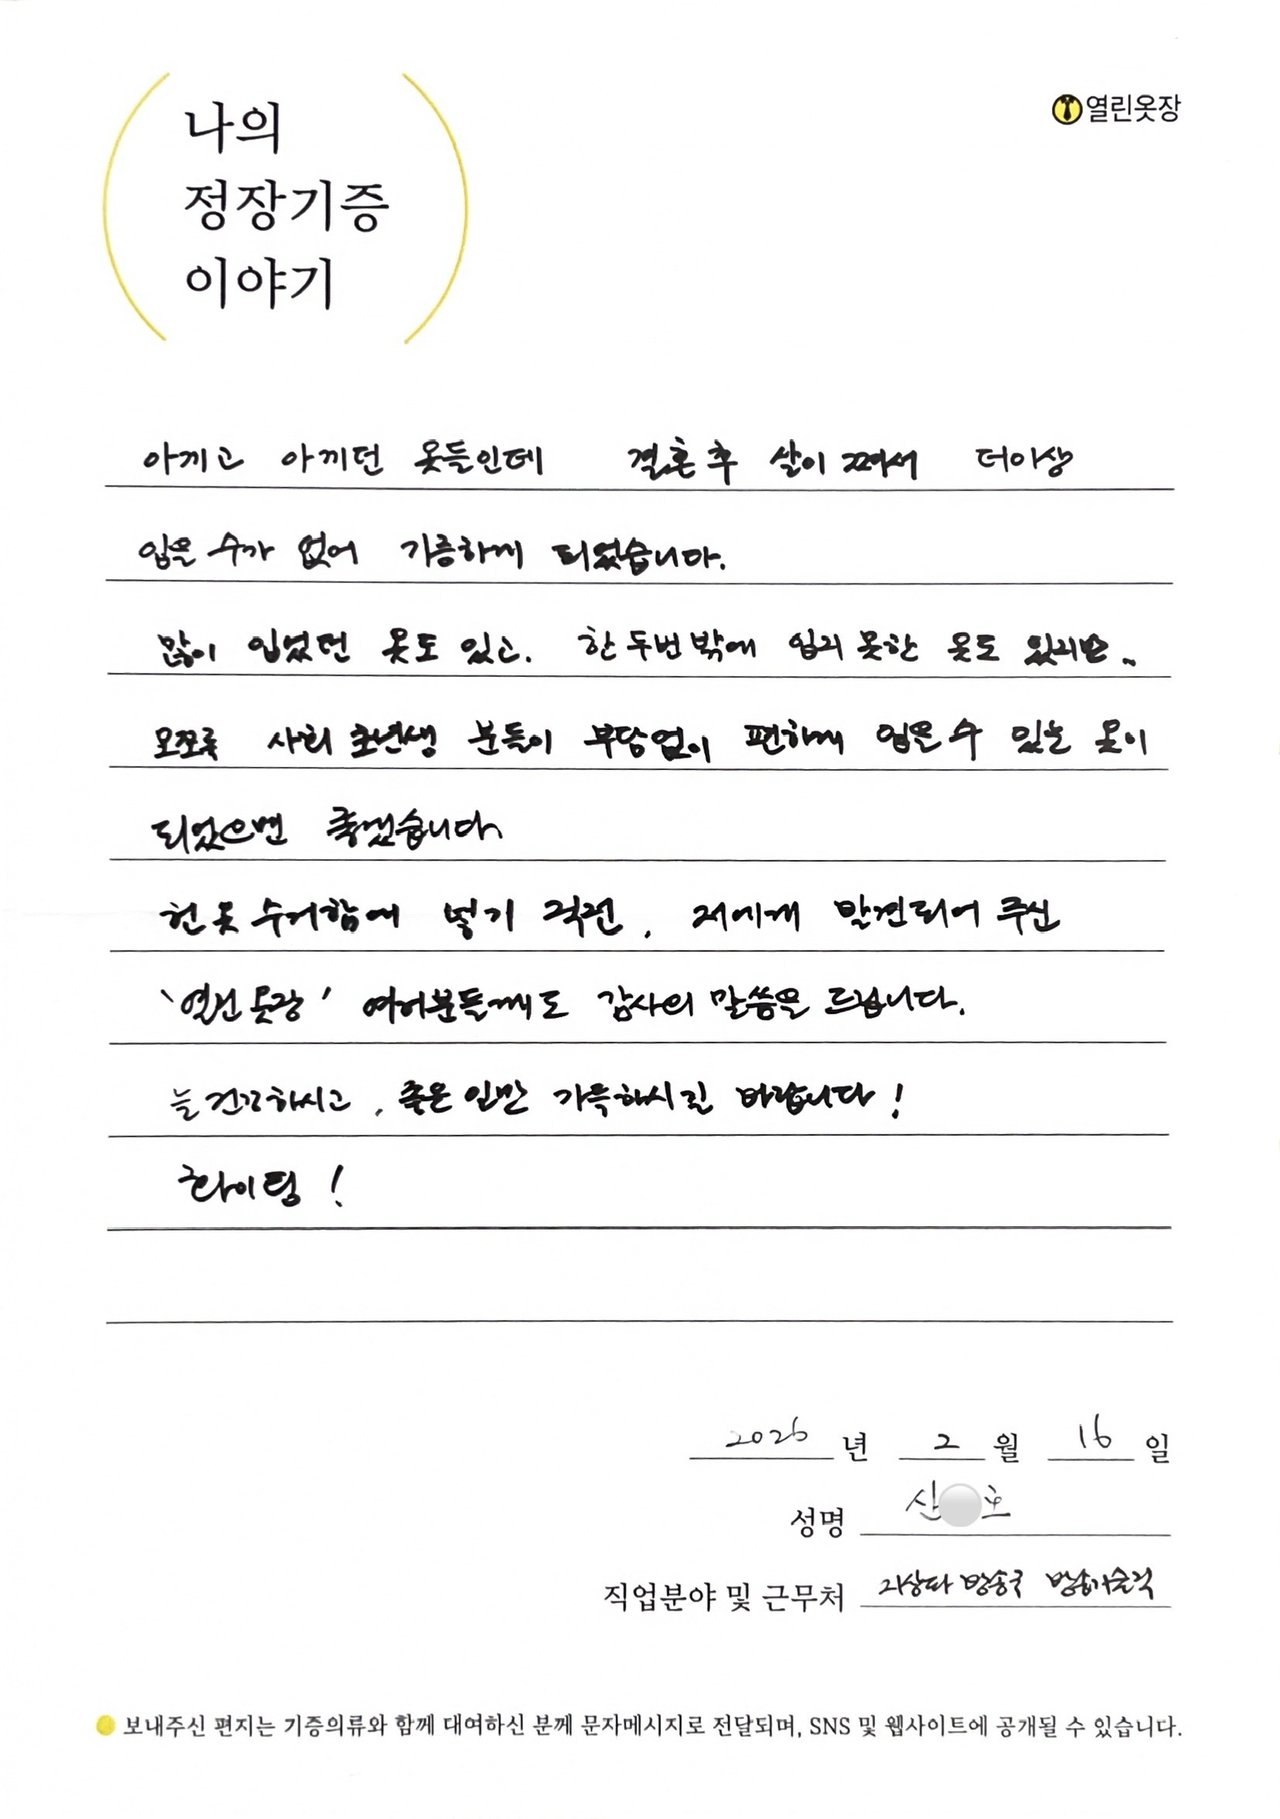 나의
정장기증
이야기
열린옷장
아끼고 아끼던 옷들인데 결혼후 살이 쪄서 더이상
입을 수가 없어 기증하게 되었습니다.
많이 입었던 옷도 있고, 한두번밖에 입지 못한 옷도 있지만..
모쪼록 사회 초년생 분들이 부담없이 편하게 입을 수 있는 옷이
되었으면 좋겠습니다.
헌 옷 수거함에 넣기 직전, 저에게 발견되어 주신
'열린 옷장' 여러분들께도 감사의 말씀을 드립니다.
늘 건강하시고, 좋은 일만 가득하시길 바랍니다!
화이팅!
2026 년 2 월 16 일
성명 신 호
직업분야 및 근무처 지상파 방송국 방송기술직
보내주신 편지는 기증의류와 함께 대여하신 분께 문자메시지로 전달되며, SNS 및 웹사이트에 공개될 수 있습니다.